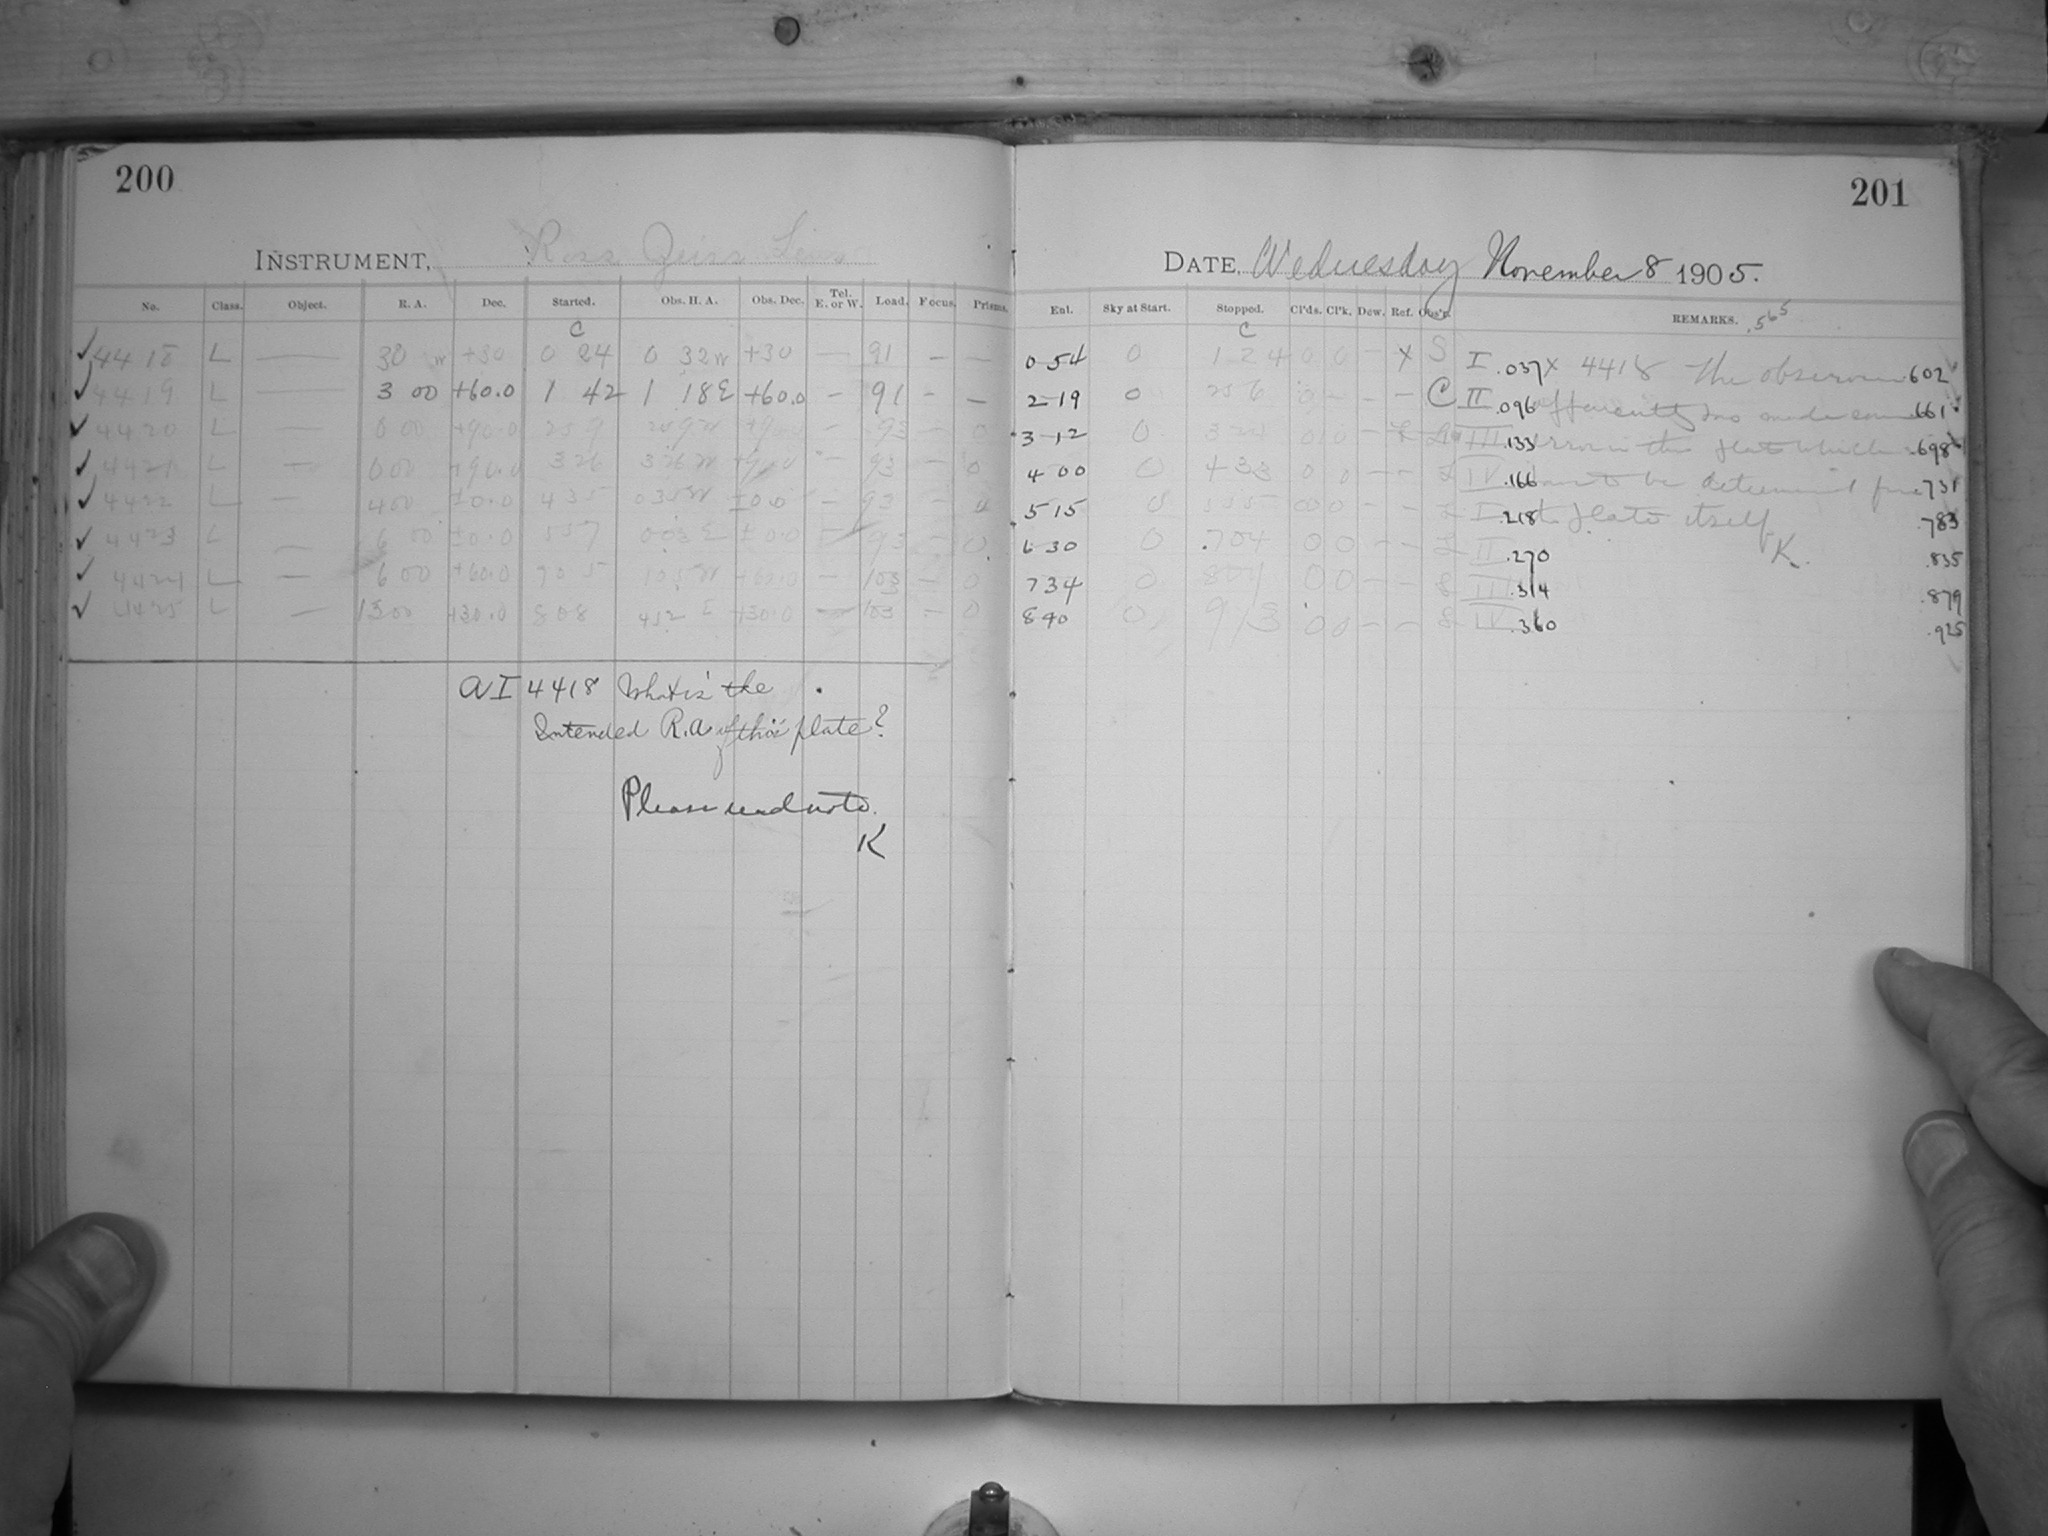 200
INSTRUMENT, Ross Zeiss Lens
No. Class. Object. R. A. Dec. Started. Obs. H. A. Obs. Dec. Tel. E. or W. Load. Focus. Prisms.
C
✓ 4418 L — 30 w +30 0 24 0 32w +30 — 91 — —
✓ 4419 L — 3 00 +60.0 1 42 1 18E +60.0 — 91 - —
✓ 4420 L — 0 00 +90.0 259 259w +90.0 — 93 — 0
✓ 4421 L — 000 +90.0 326 326w +90.0 — 93 — 0
✓ 4422 L — 400 ±0.0 435 035w ±0.0 — 93 — 0
✓ 4423 L — 6 00 ±0.0 557 003 E ±0.0 93 — 0
✓ 4424 L — 6 00 +60.0 705 105w +60.0 — 103 — 0
✓ 4425 L — 1300 +30.0 808 452 E +30.0 — 103 — 0
AI 4418 What is the
Intended R.A. of this plate?
Please send note.
K
201
DATE, Wednesday November 8 1905.
Enl. Sky at Start. Stopped. Cl'ds. Cl'k. Dew. Ref. Obs'r. REMARKS. .565
C
0 54 0 1 24 0 0 — x S I .037 x 4418 The observer .602
2-19 0 256 0 - - - C II .096 apparently has made some .661
3-12 0 324 0 0 — III .133 error in the plate which .698
4 00 0 433 0 0 — — L IV .166 to be determined from .731
5 15 0 555 0 0 0 — — L I .218 the plate itself .783
K.
6 30 0 .704 0 0 — — L II .270 .835
7 34 0 807 0 0 — — L III .314 .879
8 40 0 913 0 0 — — L IV .360 .925